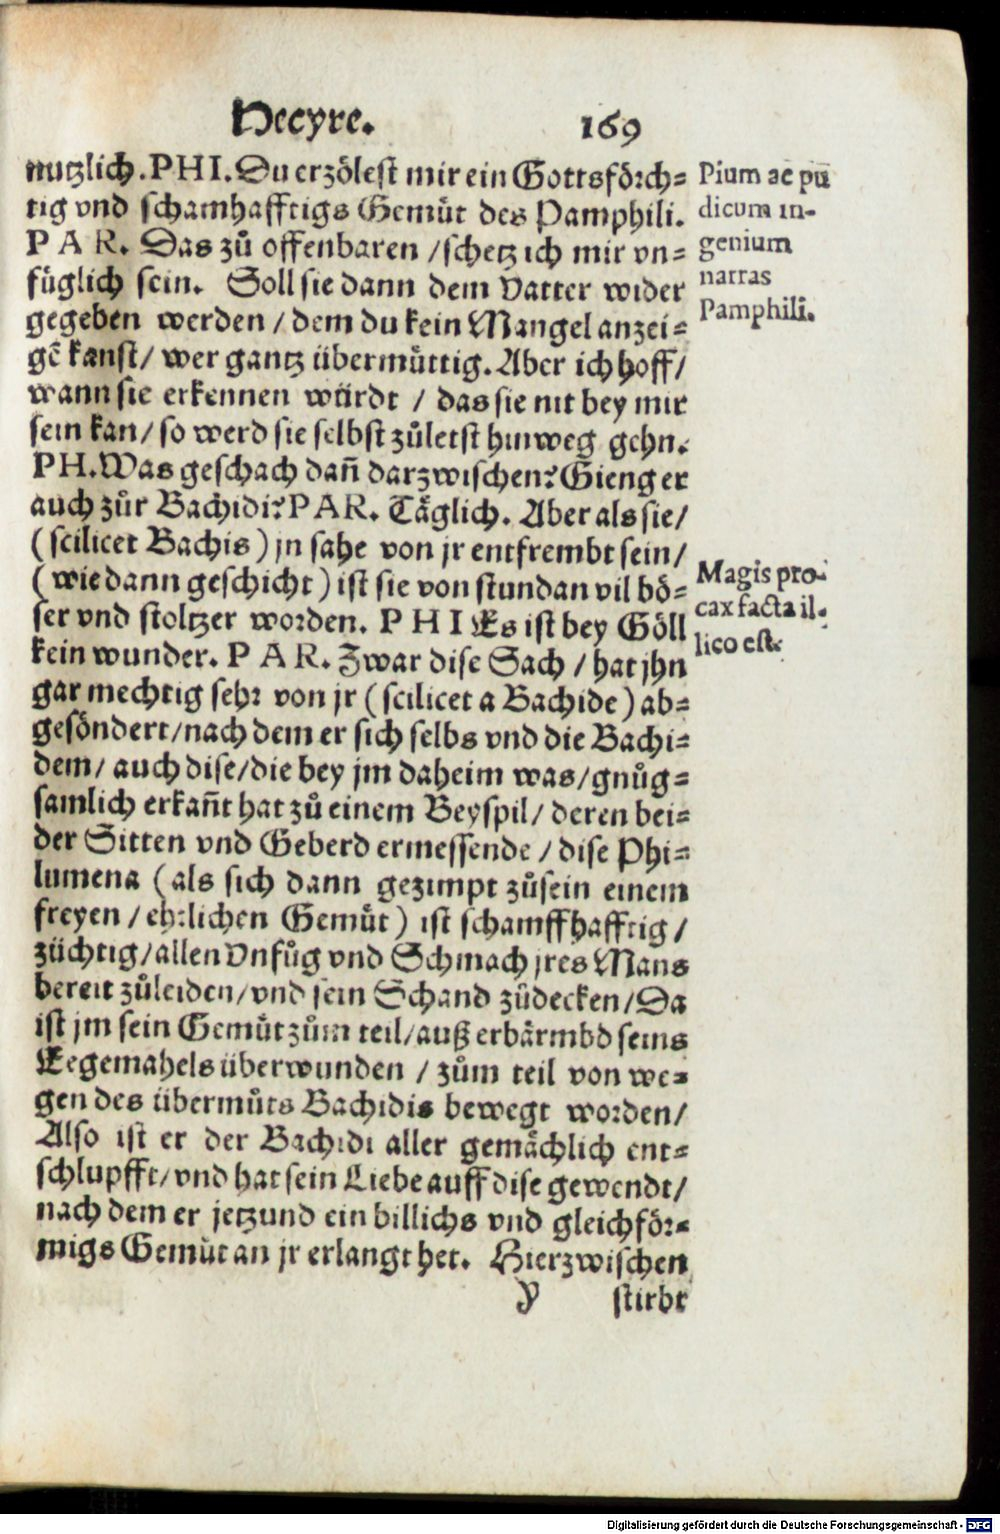 Hecyre. 169
nutzlich. PHI. Du erzölest mir ein Gottsförch⸗
tig vnd schamhafftigs Gemüt des Pamphili.
PAR. Das zů offenbaren / schetz ich mir vn⸗
füglich sein. Soll sie dann dem Vatter wider
gegeben werden / dem du kein Mangel anzei⸗
gē kanst / wer gantz übermůttig. Aber ich hoff /
wann sie erkennen würdt / das sie nit bey mir
sein kan / so werd sie selbst zůletst hinweg gehn.
PH. Was geschach dañ darzwischen? Gieng er
auch zůr Bachidi? PAR. Täglich. Aber als sie /
(scilicet Bachis) jn sahe von jr entfrembt sein /
(wie dann geschicht) ist sie von stundan vil bö⸗
ser vnd stoltzer worden. PHI Es ist bey Göll
kein wunder. PAR. Zwar dise Sach / hat jhn
gar mechtig sehr von jr (scilicet a Bachide) ab⸗
gesöndert / nach dem er sich selbs vnd die Bachi⸗
dem / auch dise / die bey jm daheim was / gnůg⸗
samlich erkañt hat zů einem Beyspil / deren bei⸗
der Sitten vnd Geberd ermessende / dise Phi⸗
lumena (als sich dann gezimpt zůsein einem
freyen / ehrlichen Gemůt) ist schamffhafftig /
züchtig / allen Vnfůg vnd Schmach jres Mans
bereit zůleiden / vnd sein Schand zůdecken / Da
ist jm sein Gemůt zům teil / auß erbärmbd seins
Eegemahels überwunden / zům teil von we⸗
gen des übermůts Bachidis bewegt worden /
Also ist er der Bachidi aller gemächlich ent⸗
schlupfft / vnd hat sein Liebe auff dise gewendt /
nach dem er jetzund ein billichs vnd gleichför⸗
migs Gemůt an jr erlangt het. Hierzwischen
Y stirbt
Pium ac pu
dicum in-
genium
narras
Pamphili.
Magis pro-
cax facta il-
lico est.
Digitalisierung gefördert durch die Deutsche Forschungsgemeinschaft - DFG